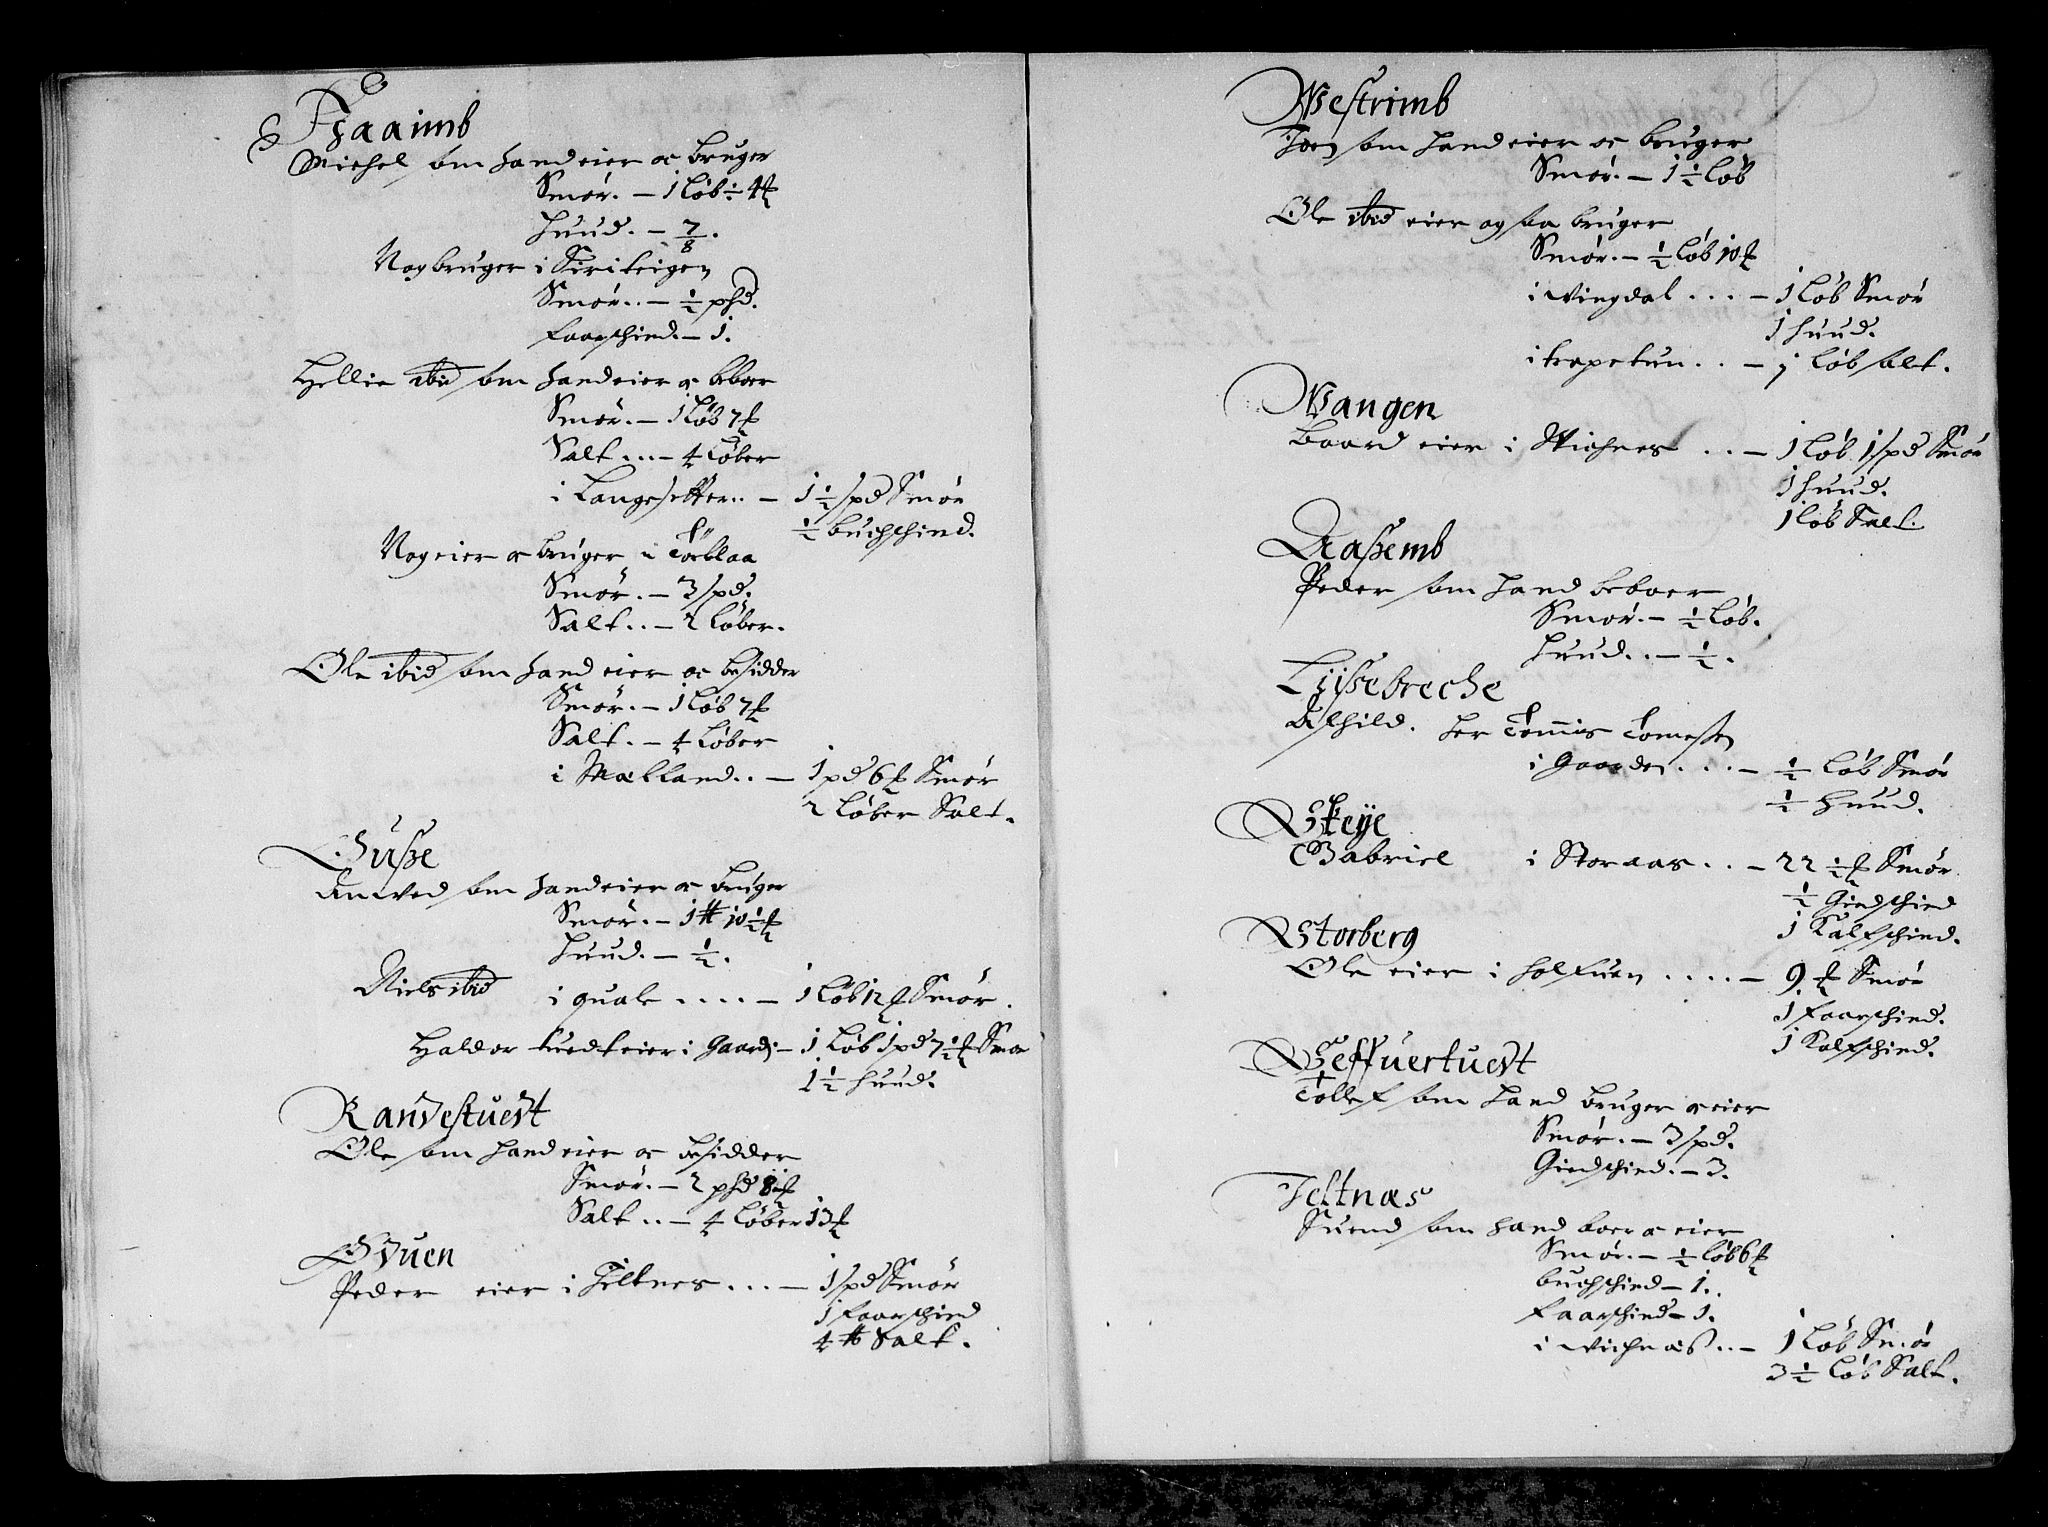 Fraaimb
Michel som hand eier oc bruger
Smør. — 1 Løb ÷ 4 ℔
Huud. — 7/8.
Nog bruger i Siriteigen
Smør.. — ½ phd.
faarschind. — 1.
Hellie ibid som hand eier oc beboer
Smør. — 1 Løb 7 ℔
Salt... — 4 Løber
i Langesetter.. — 1½ spd Smør
½ buchschind.
Nog eier oc bruger i Torblaa
Smør. — 3 spd.
Salt.. — 2 Løber.
Ole ibid som hand eier oc besidder
Smør. — 1 Løb 7 ℔
Salt. — 4 Løber
i Mælland.. — 1 pd 6 ℔ Smør
2 Løber Salt.
Husse
Anved som hand eier oc bruger
Smør. — 1 # 10½ ℔
Huud. — ½.
Niels ibid i quale .... — 1 Løb 12 ℔ Smør.
Haldor tuedt eier i Gaard: — 1 Løb 1 pd 7½ ℔ Smør
1½ huud.
Randestuedt
Ole som hand eier oc besidder
Smør. — 2 phd 8 ℔
Salt.. — 4 Løber 13 ℔
Øvuen
Peder eier i Jeltnes... — 1 spd Smør
1 faarschind
4 # Salt.
Westrimb
Joen som hand eier oc bruger
Smør. — 1½ Løb
Ole ibid eier og saa bruger
Smør. — ½ Løb 10 ℔
i vingdal ... — 1 Løb Smør
1 huud.
i trapetun.. — 1 Løb salt.
Wangen
Baard eier i Wichnes .. — 1 Løb 1 spd Smør
1 huud.
1 løb Salt.
Aassemb
Peder som hand beboer
Smør. — ½ Løb.
Huud.. — ½.
Lyssebreche
Afhild. Her Tommis Tomessen
i Gaarden... — ½ Løb Smør
½ Huud.
Skeye
Gabriel i Storaas.. — 22½ ℔ Smør
½ Giedschind
1 Kalfschind.
Storberg
Ole eier i holfuen .... — 9 ℔ Smør
1 faarschind.
1 Kalfschind.
Seffuertuedt
Tollef som hand bruger oc eier
Smør. — 3 spd.
Giedschind. — 3.
Jeltnæs
Suend som hand boer oc eier
Smør. — ½ Løb 6 ℔
buchschind — 1..
faarschind — 1.
i vichnæs.. — 1 Løb Smør
3½ Løb Salt.